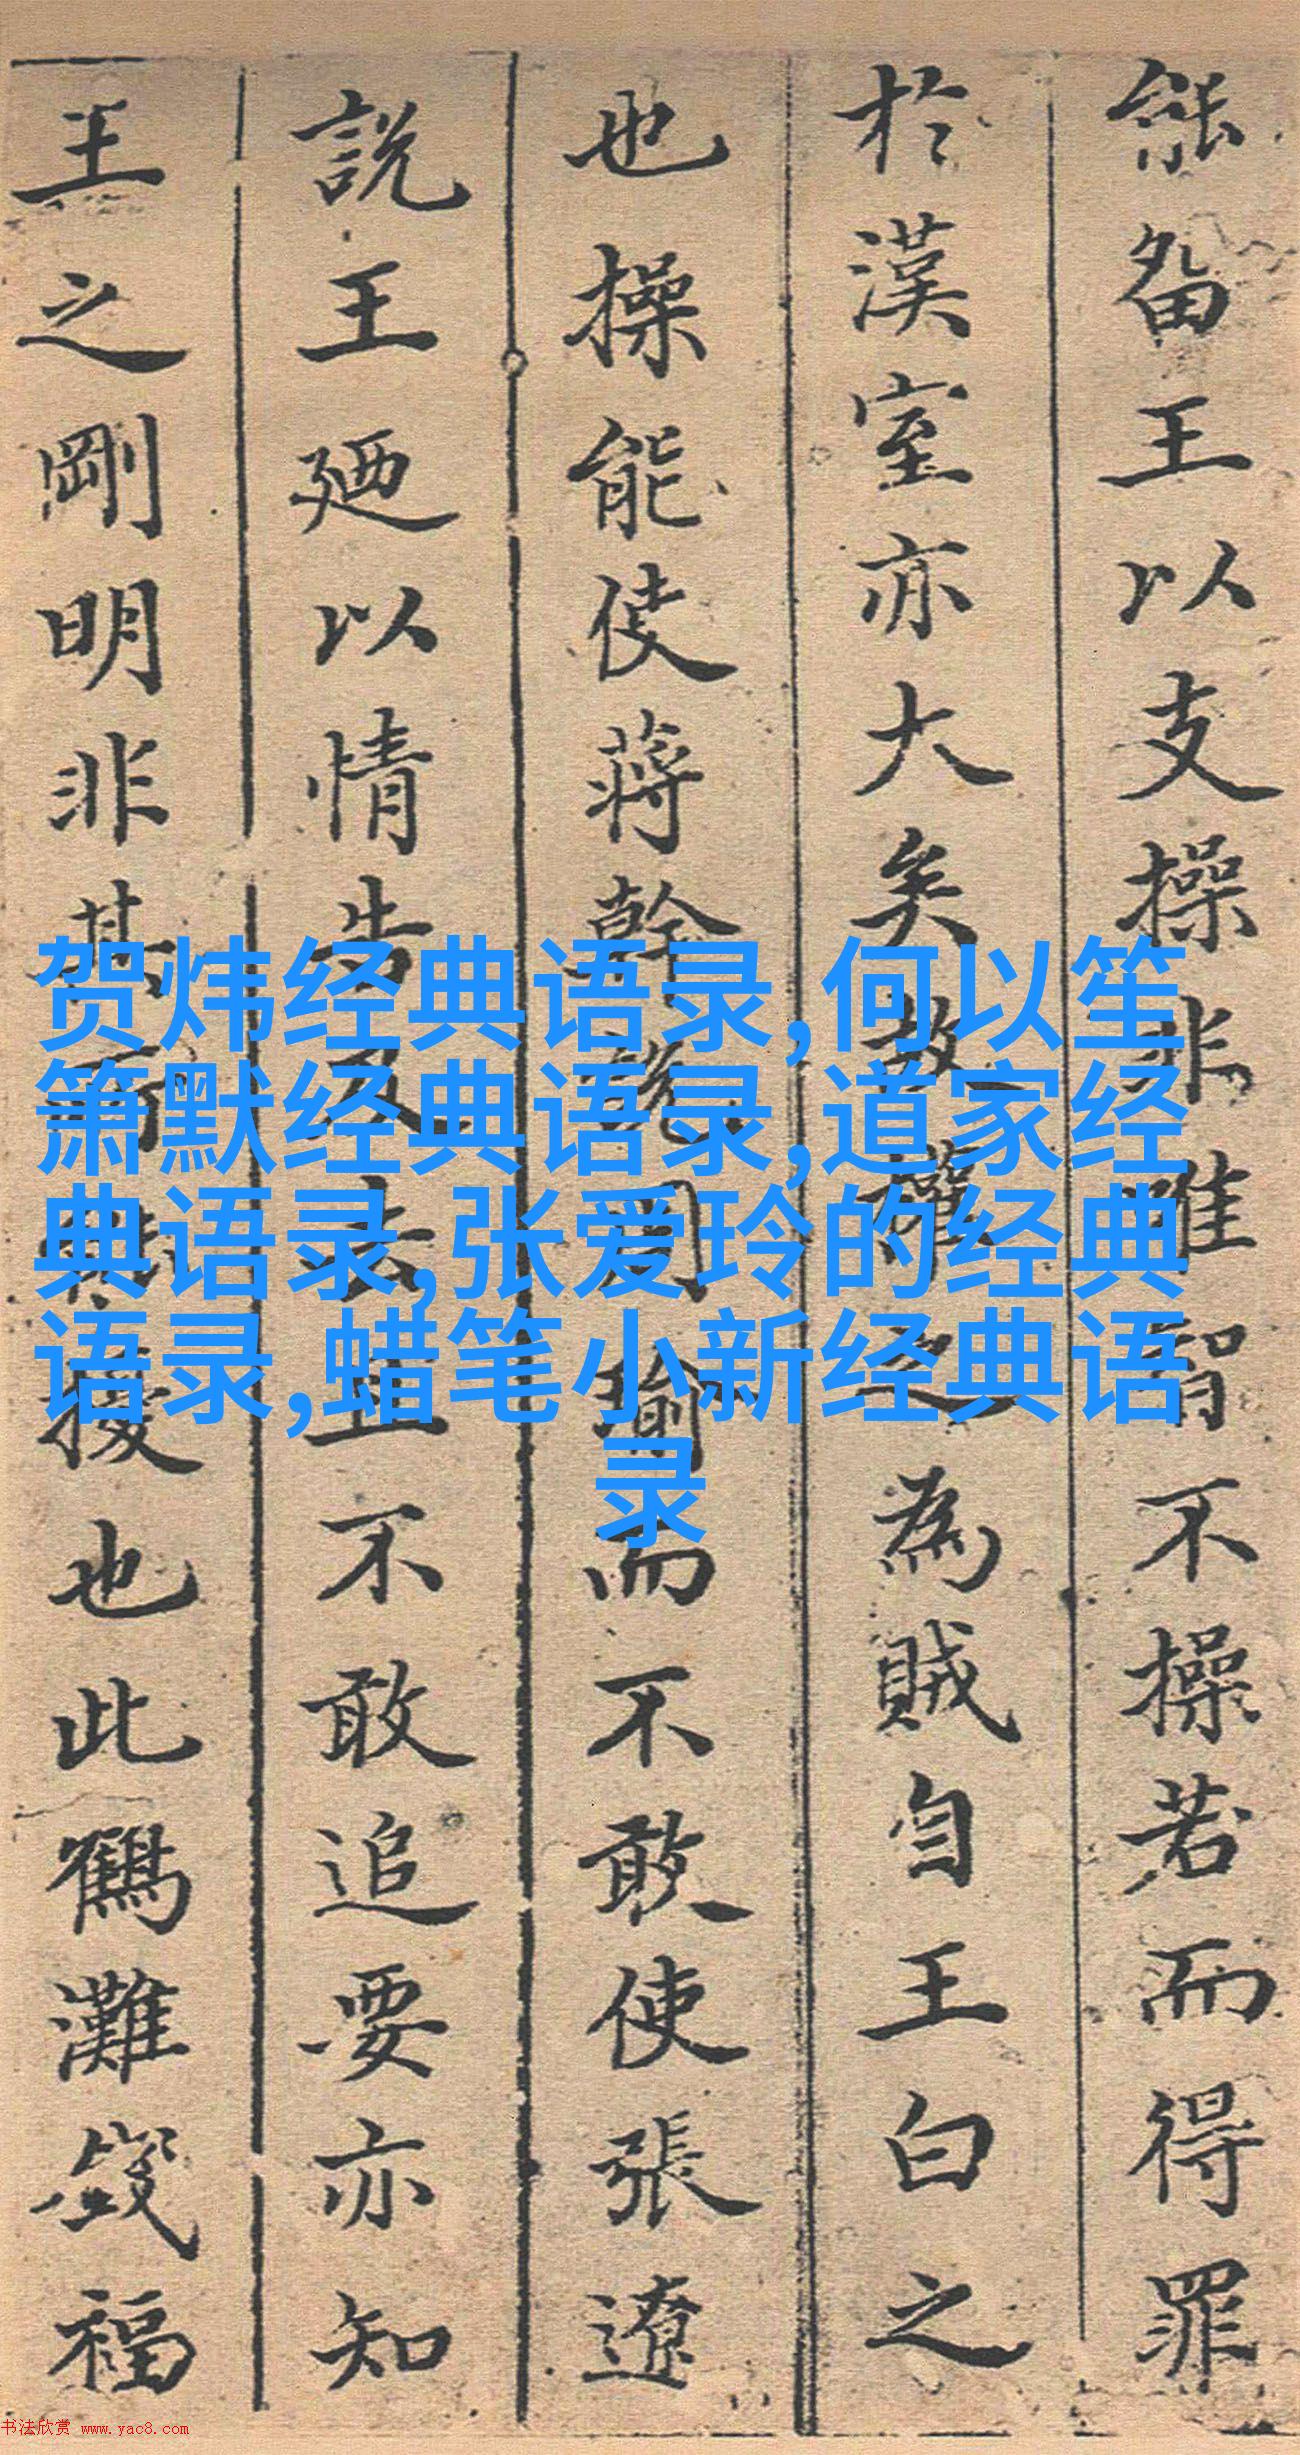 能留王以支操非唯智不操若而得罪
於漢室亦大矣故權之為賊自王白之
也操能使蔣幹說周瑜而不敢使張遼
說王廼以情告及去且不敢追要亦知
王之剛明非其能也此鶴灘福
贺炜经典语录,何以笙
箫默经典语录,道家经
典语录,张爱玲的经典
语录,蜡笔小新经典语
录
书法欣赏 www.yac8.com